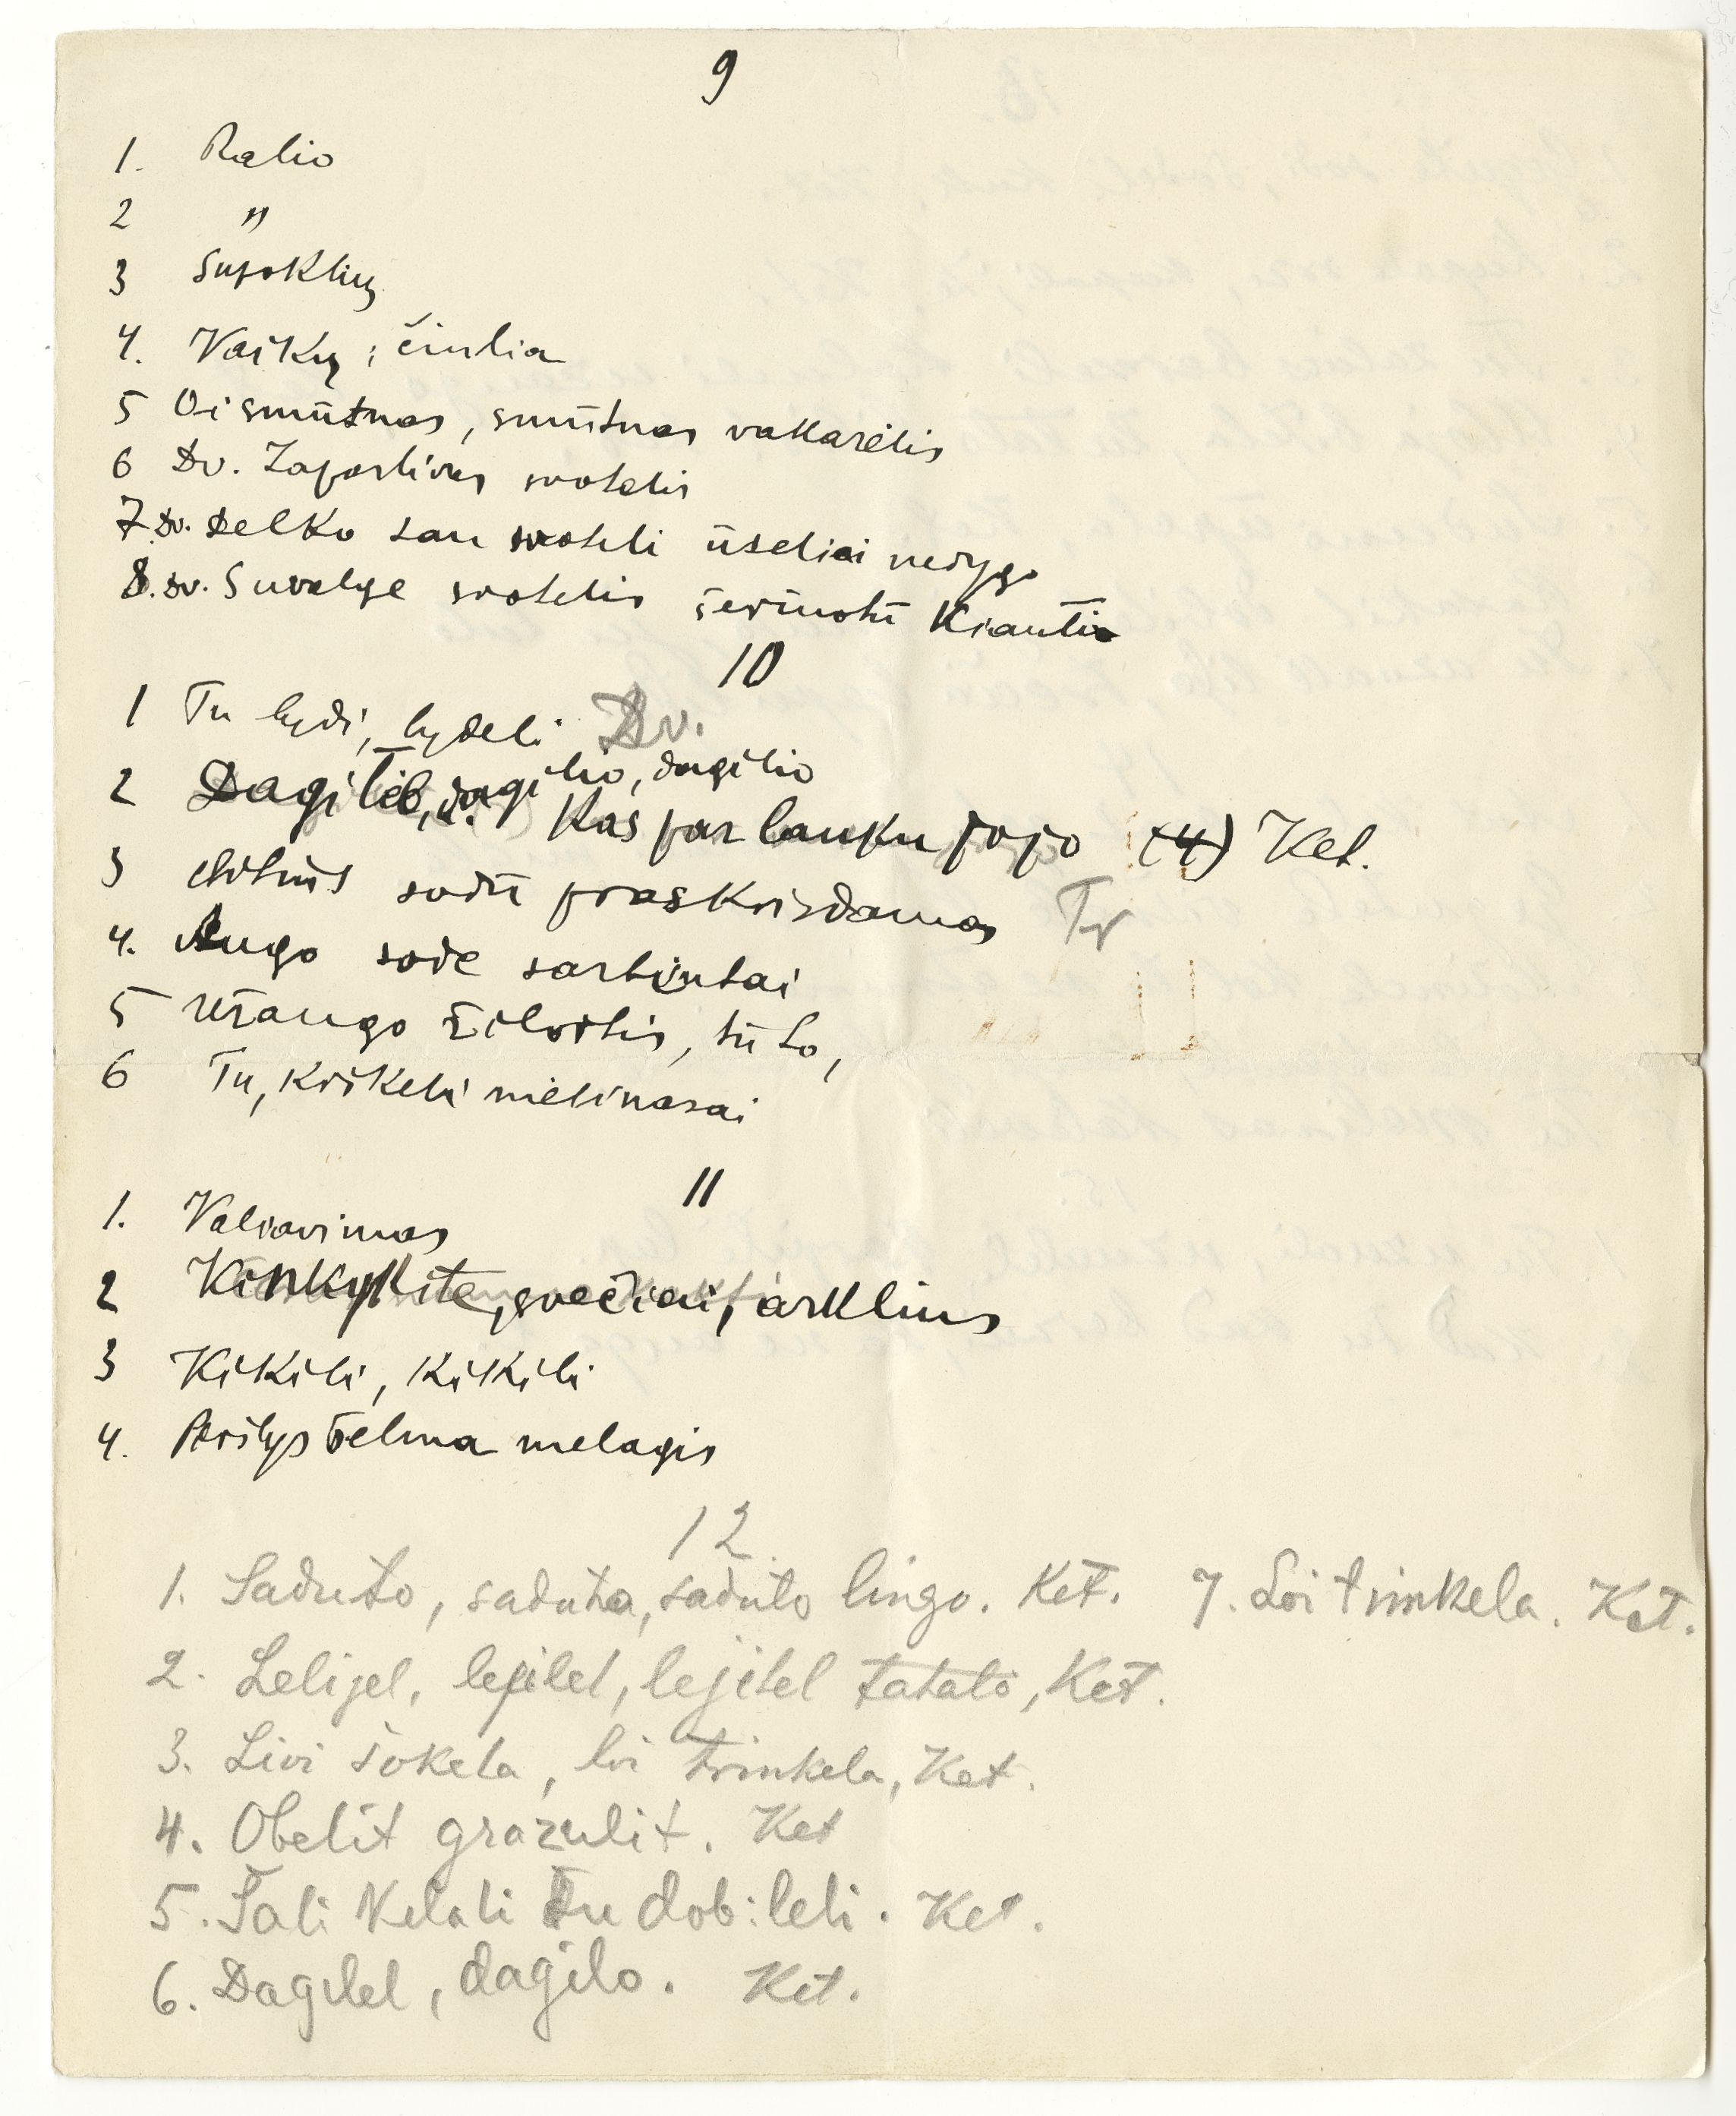 9
1. Ralio
2 "
3 Supoklių
4. Vaikų: čiulia
5 Oi smūtnas, smūtnas vakarėlis
6 Dv. Zaporlivas svotelis
7 Dv. Delko tau svoteli ūseliai nedygo
8. Dv. Suvalge svotelis šeriuotu Kiauti
10
1 Tu lydi, lydeli Dv.
2 Dagilėl, dagilio, dagilio
Kas par lauku jojo (4) Ket.
3 sodu praskrisdamas Tr
4. Augo sode sarbintai
5 Užaugo žilvitis, tūto,
6 Tu, kriškeli mielinasai
11
1. Valiavimas
2 Kinkykite, svečiai, arklius
3 Kikili, kikili
4. Piršlys šelma melagis
12
1. Saduto, saduta, saduto lingo. Ket. 7. Loi trinkela. Ket.
2. Lelijel, lejilel, lejilel tatato, Ket.
3. Livi šokela, loi trinkela, Ket.
4. Obelit grazulit. Ket
5. Šali Kelali Tu dobileli. Ket.
6. Dagilel, dagilo. Ket.